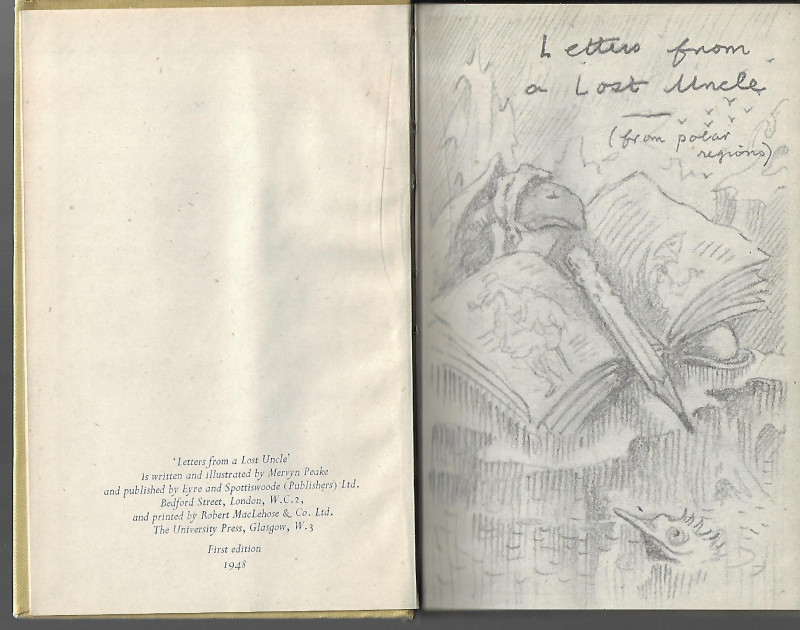 'Letters from a Lost Uncle'
is written and illustrated by Mervyn Peake
and published by Eyre and Spottiswoode (Publishers) Ltd.
Bedford Street, London, W.C.2,
and printed by Robert MacLehose & Co. Ltd.
The University Press, Glasgow, W.3
First edition
1948
Letters from
a Lost Uncle
(from polar
regions)